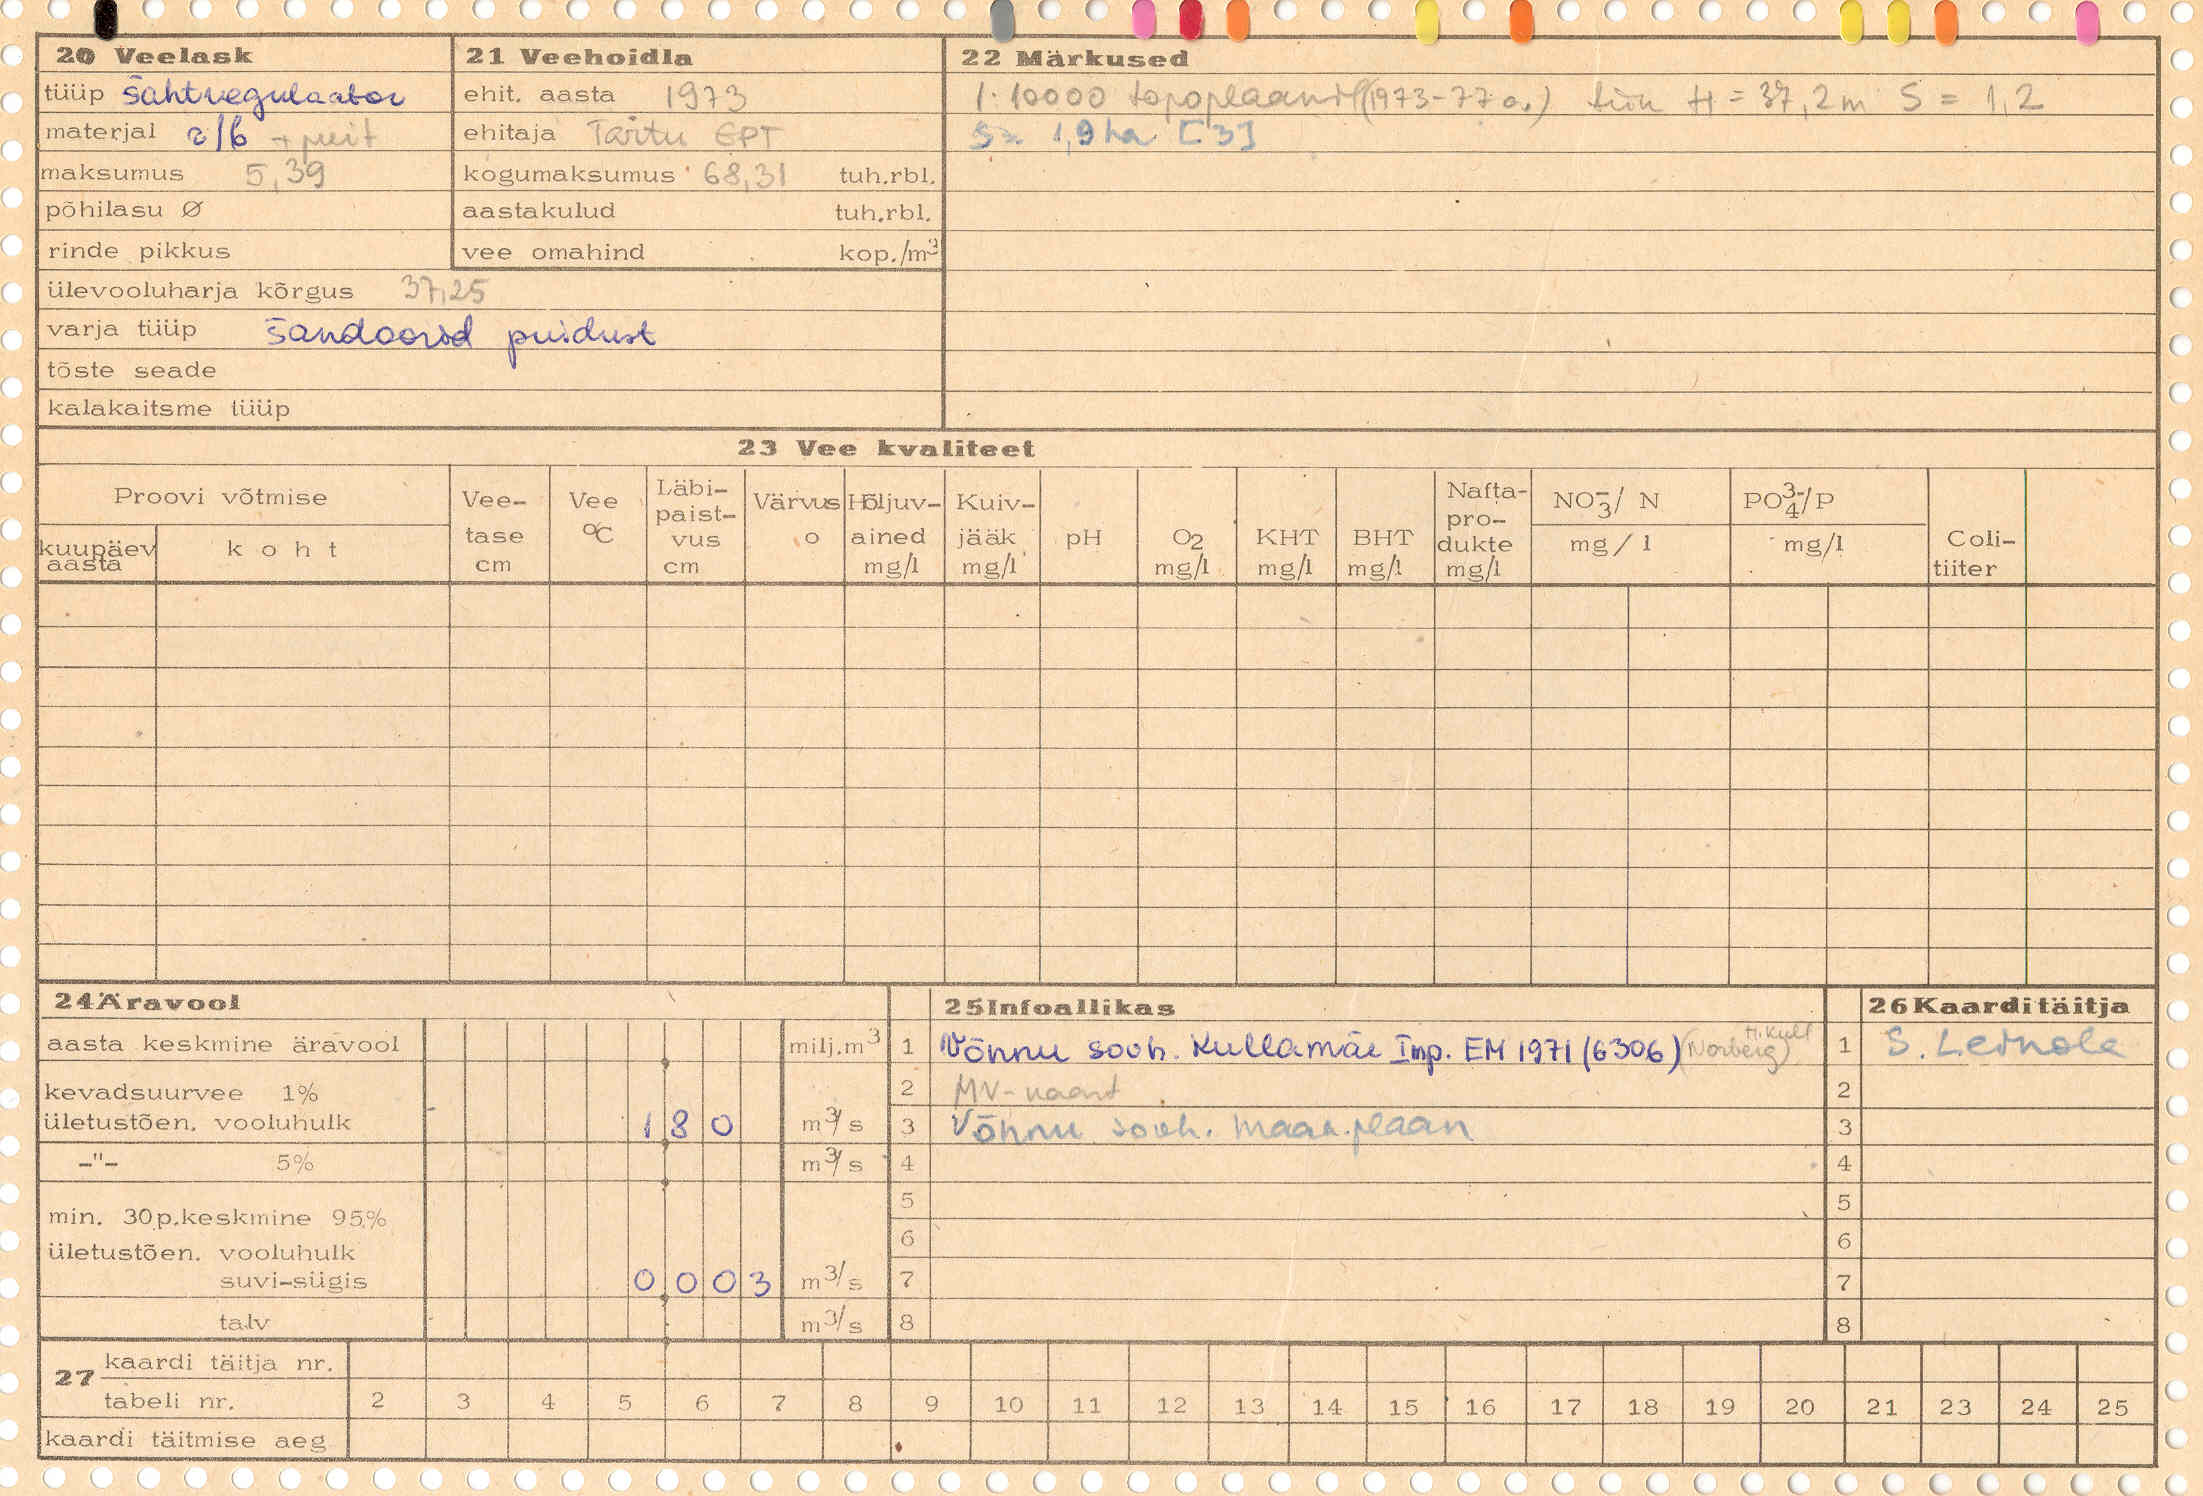 20 Veelask
tüüp šahtregulaator
materjal r/b + puit
maksumus 5,39
põhilasu Ø
rinde pikkus
ülevooluharja kõrgus 37,25
varja tüüp šandoorid puidust
tõste seade
kalakaitsme tüüp
21 Veehoidla
ehit. aasta 1973
ehitaja Tartu EPT
kogumaksumus 68,31 tuh.rbl.
aastakulud tuh.rbl.
vee omahind kop./m³
22 Märkused
1:10000 topoplaanil (1973-77 a.) H = 37,2 m S = 1,2
S = 1,9 ha [3]
23 Vee kvaliteet
Proovi võtmise
kuupäev aasta
koht
Vee-tase cm
Vee °C
Läbi-paist-vus cm
Värvus o
Hõljuv-ained mg/l
Kuiv-jääk mg/l
pH
O₂ mg/l
KHT mg/l
BHT mg/l
Nafta-pro-dukte mg/l
NO₃⁻/ N mg/l
PO₄³⁻/P mg/l
Coli-tiiter
24 Äravool
aasta keskmine äravool milj.m³
kevadsuurvee 1%
ületustõen. vooluhulk 1 8 0 m³/s
-"- 5% m³/s
min. 30p.keskmine 95%
ületustõen. vooluhulk
suvi-sügis 0 0 0 3 m³/s
talv m³/s
25 Infoallikas
1 Võnnu sovh. Kullamäe Imp. EM 1971 (6306) (Norberg) H. Kull
2 MV-kaart
3 Võnnu sovh. maak.plaan
4
5
6
7
8
26 Kaarditäitja
1 S. Leinola
2
3
4
5
6
7
8
27 kaardi täitja nr.
tabeli nr. 2 3 4 5 6 7 8 9 10 11 12 13 14 15 16 17 18 19 20 21 23 24 25
kaardi täitmise aeg